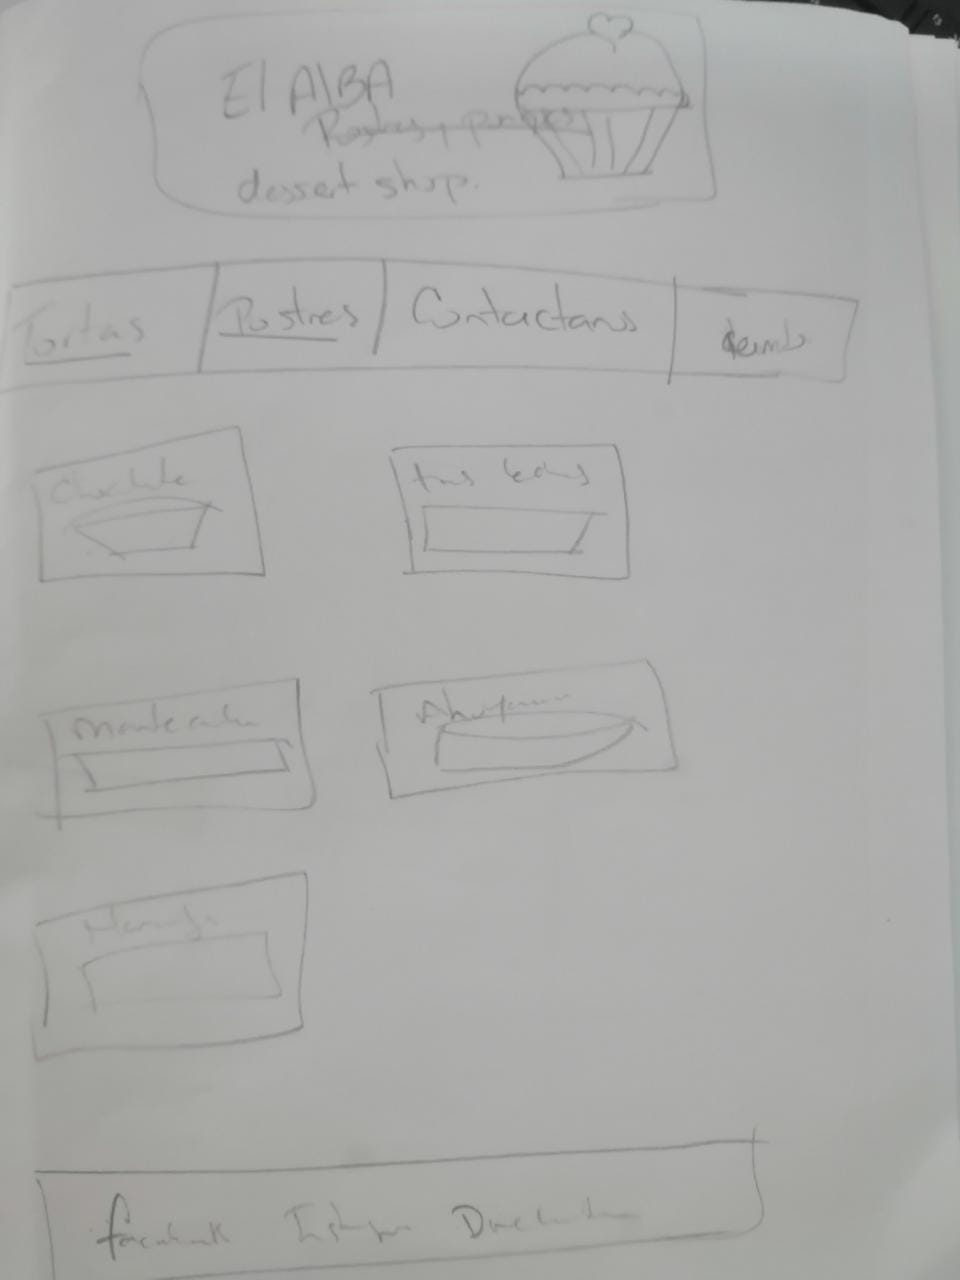 El AlBA
Postres y
dessert shop.
Tortas Postres Contactanos
Chocolate tres leches
Mantecada Ahuyama
Naranja
facebook Instagram Direccion